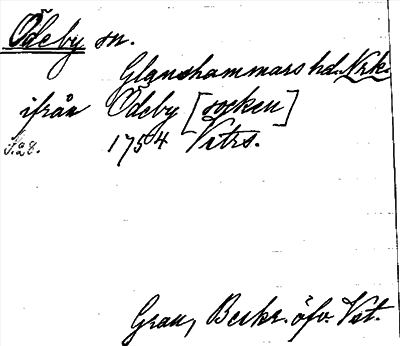 Ödeby sn.
Glanshammars hd. Nrk.
ifrån Ödeby [socken]
1754 Vrtrs.
Grau, Beskr. öfv. Vst.